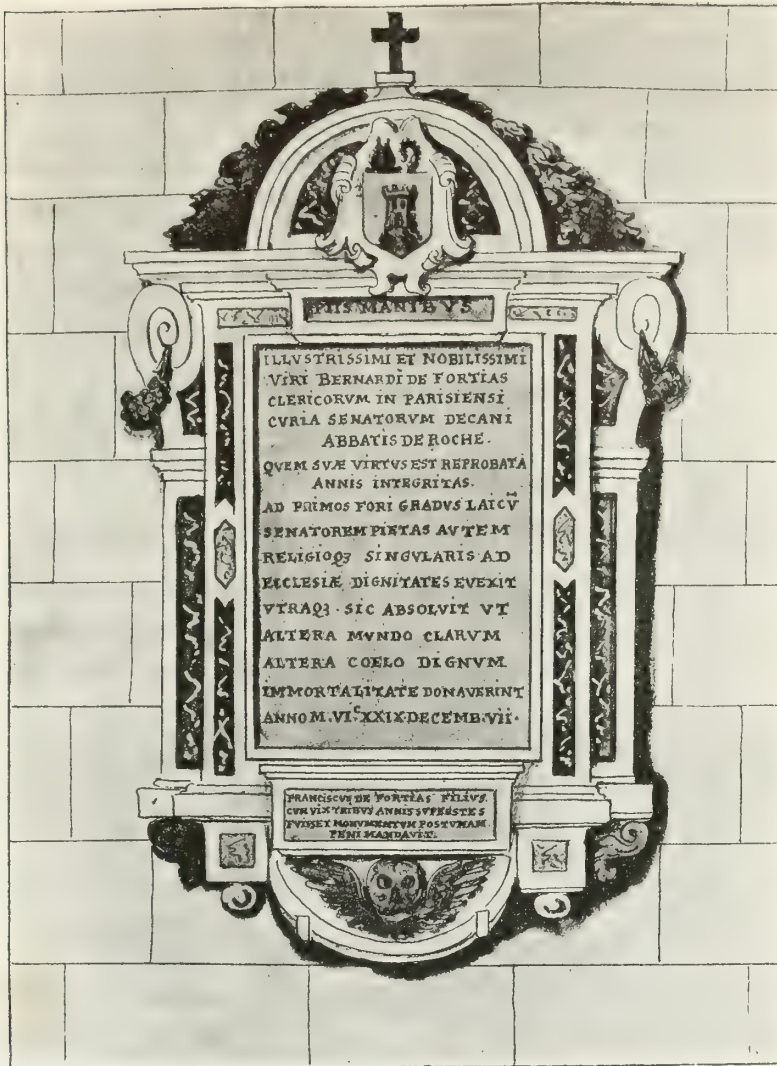 PIIS MANIBVS
ILLVSTRISSIMI ET NOBILISSIMI
VIRI BERNARDI DE FORTIAS
CLERICORVM IN PARISIENSI
CVRIA SENATORVM DECANI
ABBATIS DE ROCHE.
QVEM SVÆ VIRTVS EST REPROBATA
ANNIS INTEGRITAS.
AD PRIMOS FORI GRADVS LAICŨ
SENATOREM PIETAS AVTEM
RELIGIOQ3 SINGVLARIS AD
ECCLESIÆ DIGNITATES EVEXIT
VTRAQ3 · SIC ABSOLVIT VT
ALTERA MVNDO CLARVM
ALTERA COELO DIGNVM
IMMORTALITATE DONAVERINT
ANNO M. VIᶜ XXIX · DECEMB · VII ·
FRANCISCVS DE FORTIAS FILIVS.
CVM VIX TRIBVS ANNIS SVPERSTES
FVISSET MONVMENTVM POSTVMAM
PENI MANDAVIT.